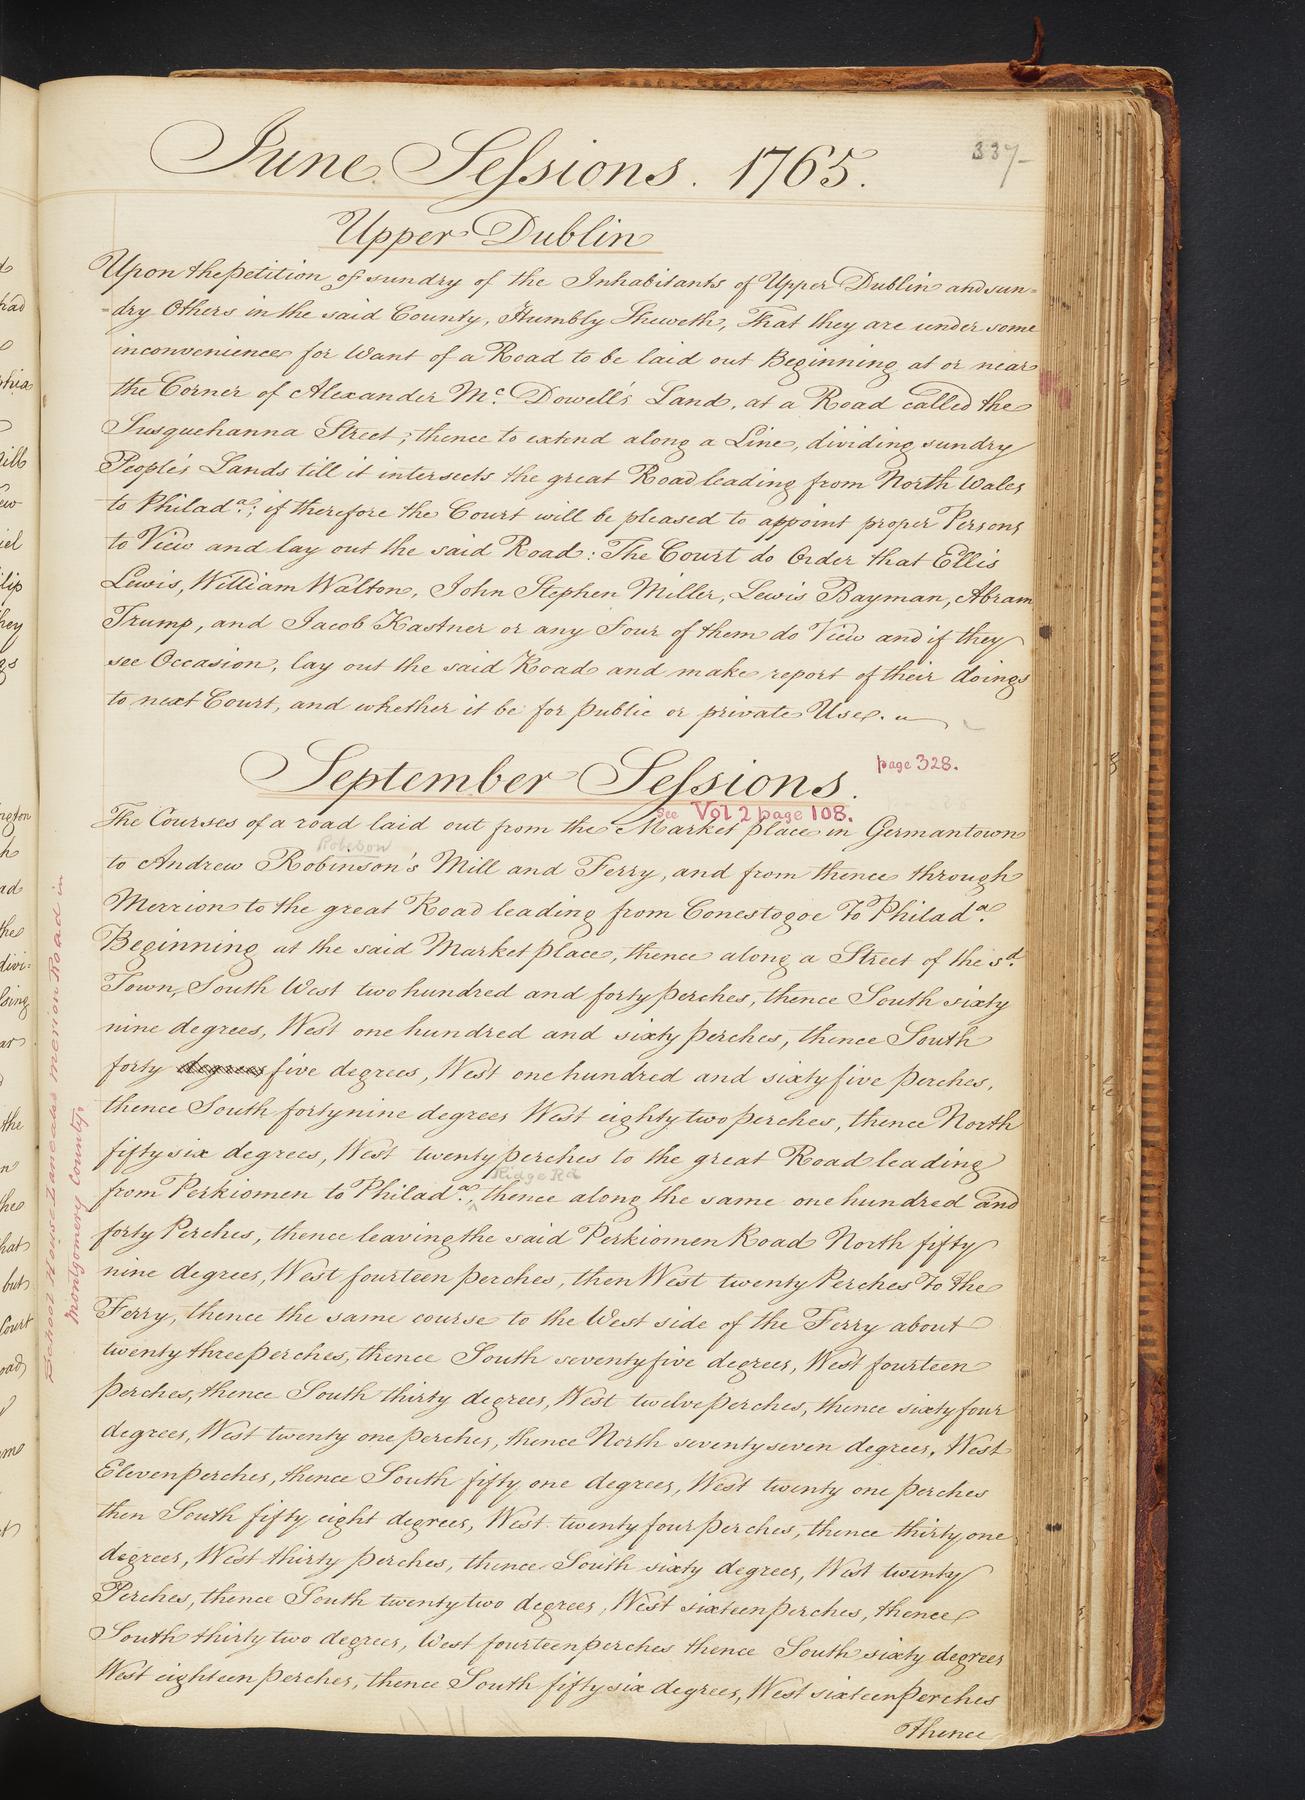 337
June Sessions. 1765.
Upper Dublin
Upon the petition of sundry of the Inhabitants of Upper Dublin and sun-
-dry Others in the said County, Humbly Sheweth, That they are under some
inconvenience for Want of a Road to be laid out Beginning at or near
the Corner of Alexander Mc. Dowell's Land, at a Road called the
Susquehanna Street; thence to extend along a Line, dividing sundry
People's Lands till it intersects the great Road leading from North Wales
to Philada.; if therefore the Court will be pleased to appoint proper Persons
to View and lay out the said Road: The Court do Order that Ellis
Lewis, William Walton, John Stephen Miller, Lewis Bayman, Abram
Trump, and Jacob Kastner or any Four of them do View and if they
see Occasion, lay out the said Road and make report of their doings
to next Court, and whether it be for public or private Use.
September Sessions.
page 328.
see Vol 2 page 108.
The Courses of a road laid out from the Market place in Germantown
Robeson
to Andrew Robinson's Mill and Ferry, and from thence through
Merrion to the great Road leading from Conestogoe To Philada.
Beginning at the said Market place, thence along a Street of the sd.
Town, South West two hundred and forty perches, thence South sixty
nine degrees, West one hundred and sixty perches, thence South
forty degrees five degrees, West one hundred and sixty five perches,
thence South forty nine degrees West eighty two perches, thence North
fifty six degrees, West twenty perches to the great Road leading
Ridge Rd
from Perkiomen to Philada., thence along the same one hundred and
forty Perches, thence leaving the said Perkiomen Road North fifty
nine degrees, West fourteen perches, then West twenty Perches To the
Ferry, thence the same course to the West side of the Ferry about
twenty three perches, thence South seventy five degrees, West fourteen
perches, thence South thirty degrees, West twelve perches, thence sixty four
degrees, West twenty one perches, thence North seventy seven degrees, West
Eleven perches, thence South fifty one degrees, West twenty one perches
then South fifty eight degrees, West twenty four perches, thence thirty one
degrees, West thirty perches, thence South sixty degrees, West twenty
Perches, thence South twenty two degrees, West sixteen perches, thence
South thirty two degrees, West fourteen perches thence South sixty degrees
West eighteen perches, thence South fifty six degrees, West sixteen perches
thence
School House Lane also merion Road in
Montgomery County